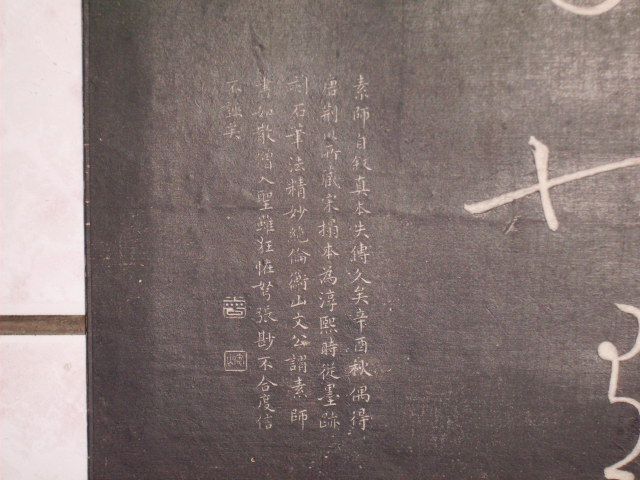 十
素師自叙真本失傳久矣辛酉秋偶得
唐荆川所藏宋搨本為淳熙時從墨跡
刻石筆法精妙絶倫衡山文公謂素師
書如散僧入聖雖狂恠弩張尠不合度信
不誣矣